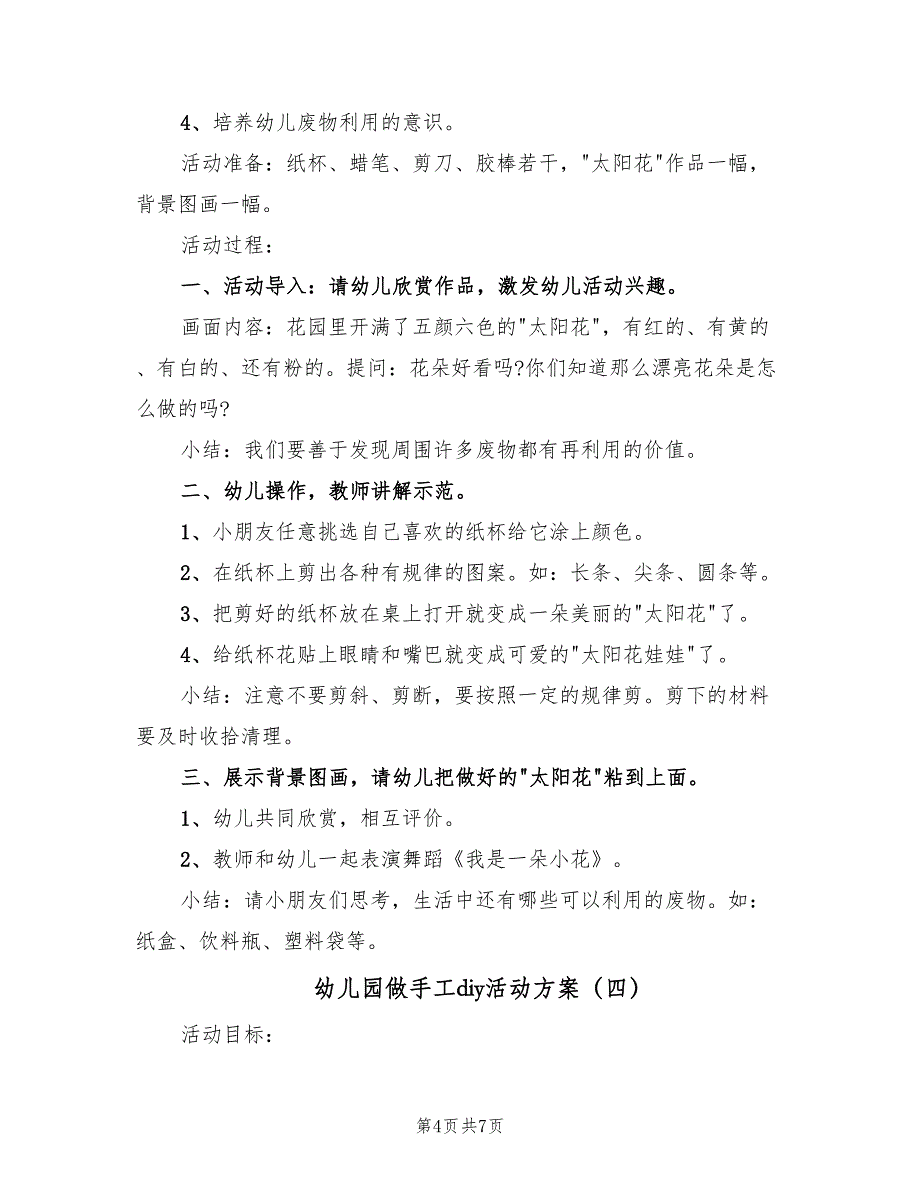 4、培养幼儿废物利用的意识。
活动准备：纸杯、蜡笔、剪刀、胶棒若干，"太阳花"作品一幅，
背景图画一幅。
活动过程：
一、活动导入：请幼儿欣赏作品，激发幼儿活动兴趣。
画面内容：花园里开满了五颜六色的"太阳花"，有红的、有黄的
、有白的、还有粉的。提问：花朵好看吗?你们知道那么漂亮花朵是怎
么做的吗?
小结：我们要善于发现周围许多废物都有再利用的价值。
二、幼儿操作，教师讲解示范。
1、小朋友任意挑选自己喜欢的纸杯给它涂上颜色。
2、在纸杯上剪出各种有规律的图案。如：长条、尖条、圆条等。
3、把剪好的纸杯放在桌上打开就变成一朵美丽的"太阳花"了。
4、给纸杯花贴上眼睛和嘴巴就变成可爱的"太阳花娃娃"了。
小结：注意不要剪斜、剪断，要按照一定的规律剪。剪下的材料
要及时收拾清理。
三、展示背景图画，请幼儿把做好的"太阳花"粘到上面。
1、幼儿共同欣赏，相互评价。
2、教师和幼儿一起表演舞蹈《我是一朵小花》。
小结：请小朋友们思考，生活中还有哪些可以利用的废物。如：
纸盒、饮料瓶、塑料袋等。
幼儿园做手工diy活动方案（四）
活动目标：
第4页共7页